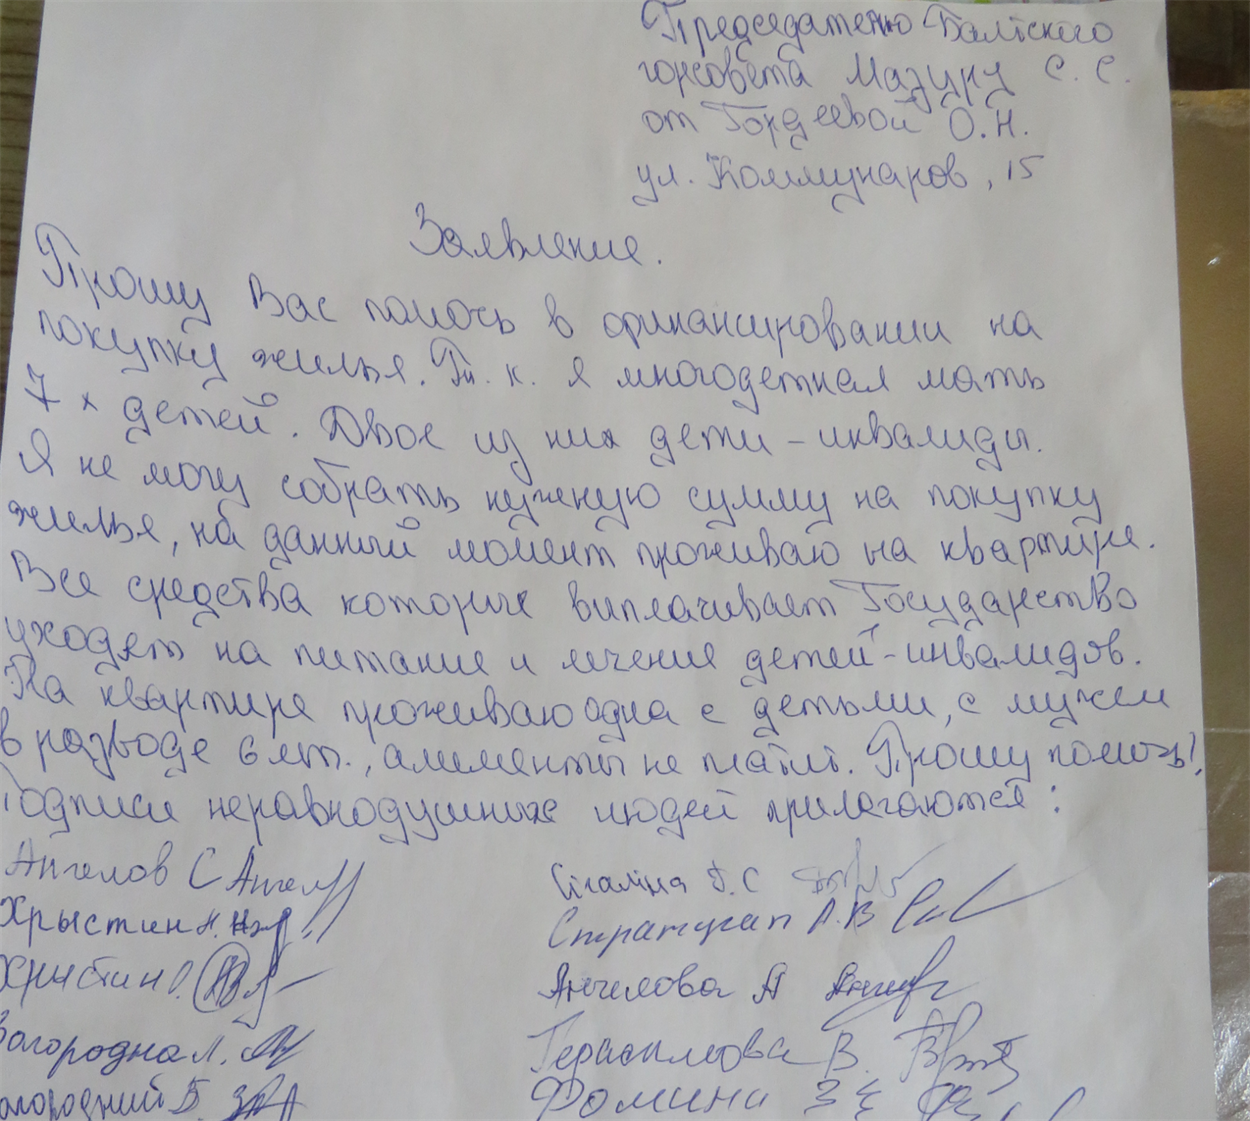 Председателю Балтского
горсовета Мазуру С. С.
от Гордеевой О.Н.
ул. Коммунаров, 15
Заявление.
Прошу Вас помочь в финансировании на
покупку жилья. Т. к. я многодетная мать
7 х детей. Двое из них дети - инвалиды.
Я не могу собрать нужную сумму на покупку
жилья, на данный момент проживаю на квартире.
Все средства которые виплачивает Государство
уходят на питание и лечение детей - инвалидов.
На квартире проживаю одна с детьми, с мужем
в разводе 6 лет., алименты не платит. Прошу помочь!
Подписи неравнодушных людей прилагаются:
Ангелов С
Сігаліна Г. С
Хрыстин Н.
Стратуган Л. В
Христин О.
Ангелова А
Загородная Л.
Герасимова В.
Загородний Б.
Фомина З Є